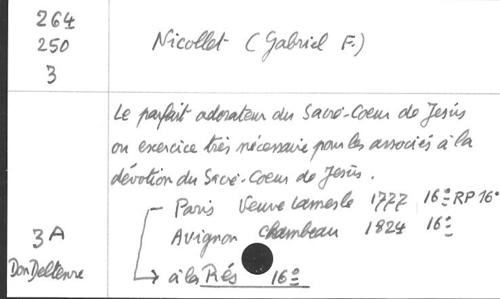 264
250
3
Nicollet (Gabriel F.)
Le parfait adorateur du Sacré-Coeur de Jesús
ou exercice très nécessaire pour les associés à la
dévotion du Sacré-Coeur de Jesús.
Paris Veuve Lamesle 1777 16° RP 16°
Avignon Chambeau 1824 16°
3A
Don Deltenre
à la Rés 16°